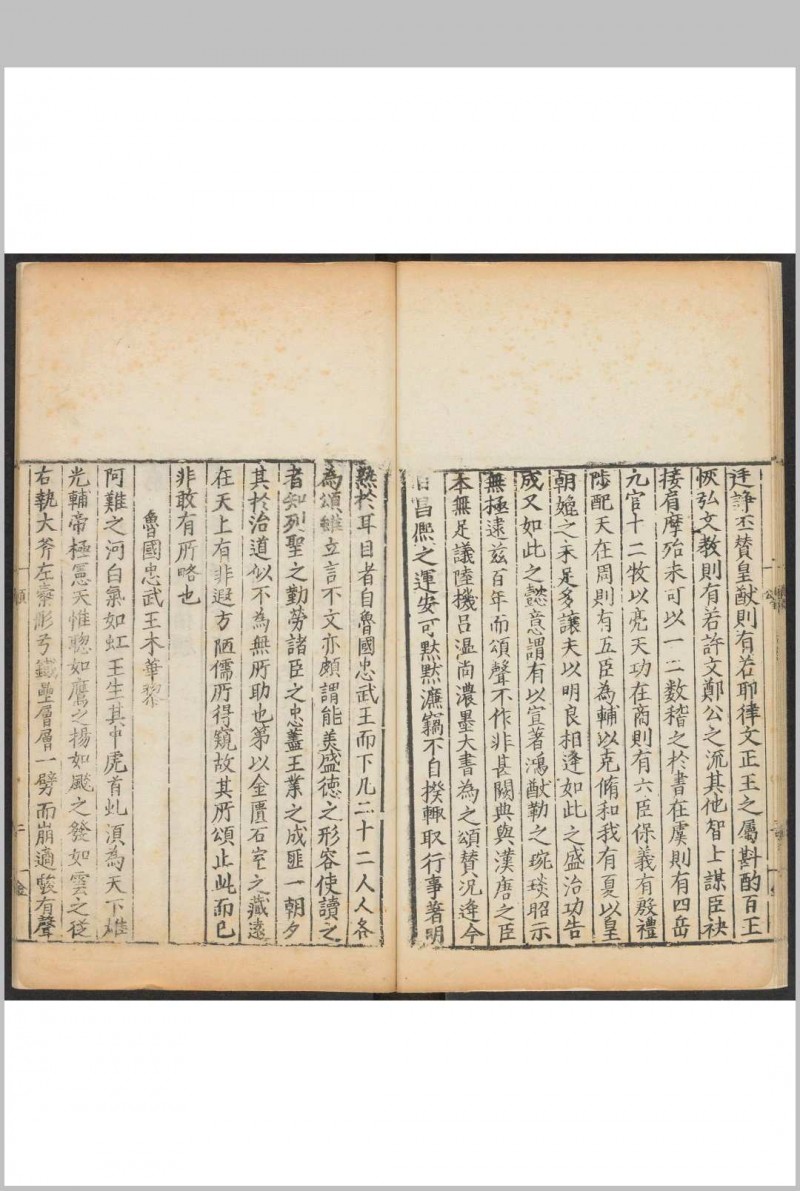 廷諍丕贊皇猷則有若耶律文正王之屬斟酌百王
恢弘文教則有若許文鄭公之流其他智士謀臣袂
接肩摩殆未可以一二數稽之於書在虞則有四岳
九官十二牧以亮天功在商則有六臣保義有殷禮
陟配天在周則有五臣為輔以克脩和我有夏以皇
朝媲之未足多讓夫以明良相逢如此之盛治功告
成又如此之懿意謂有以宣著鴻猷勒之琬琰昭示
無極逺兹百年而頌聲不作非甚闕典與漢唐之臣
本無足議陸機呂温尚濃墨大書為之頌贊况逢今
日昌熈之運安可黙黙㢘竊不自揆輙取行事著明
熟於耳目者自魯國忠武王而下凡二十二人人各
為頌雖立言不文亦頗謂能美盛徳之形容使讀之
者知列聖之勤勞諸臣之忠藎王業之成匪一朝夕
其於治道似不為無所助也第以金匱石室之藏逺
在天上有非遐方陋儒所得窺故其所頌止此而已
非敢有所略也
魯國忠武王木華黎
阿難之河白氣如虹王生其中虎首虬湏為天下雄
光輔帝極憲天惟聰如鷹之揚如飈之發如雲之從
右執大斧左櫜彤弓鐡壘層層一劈而崩適駿有聲